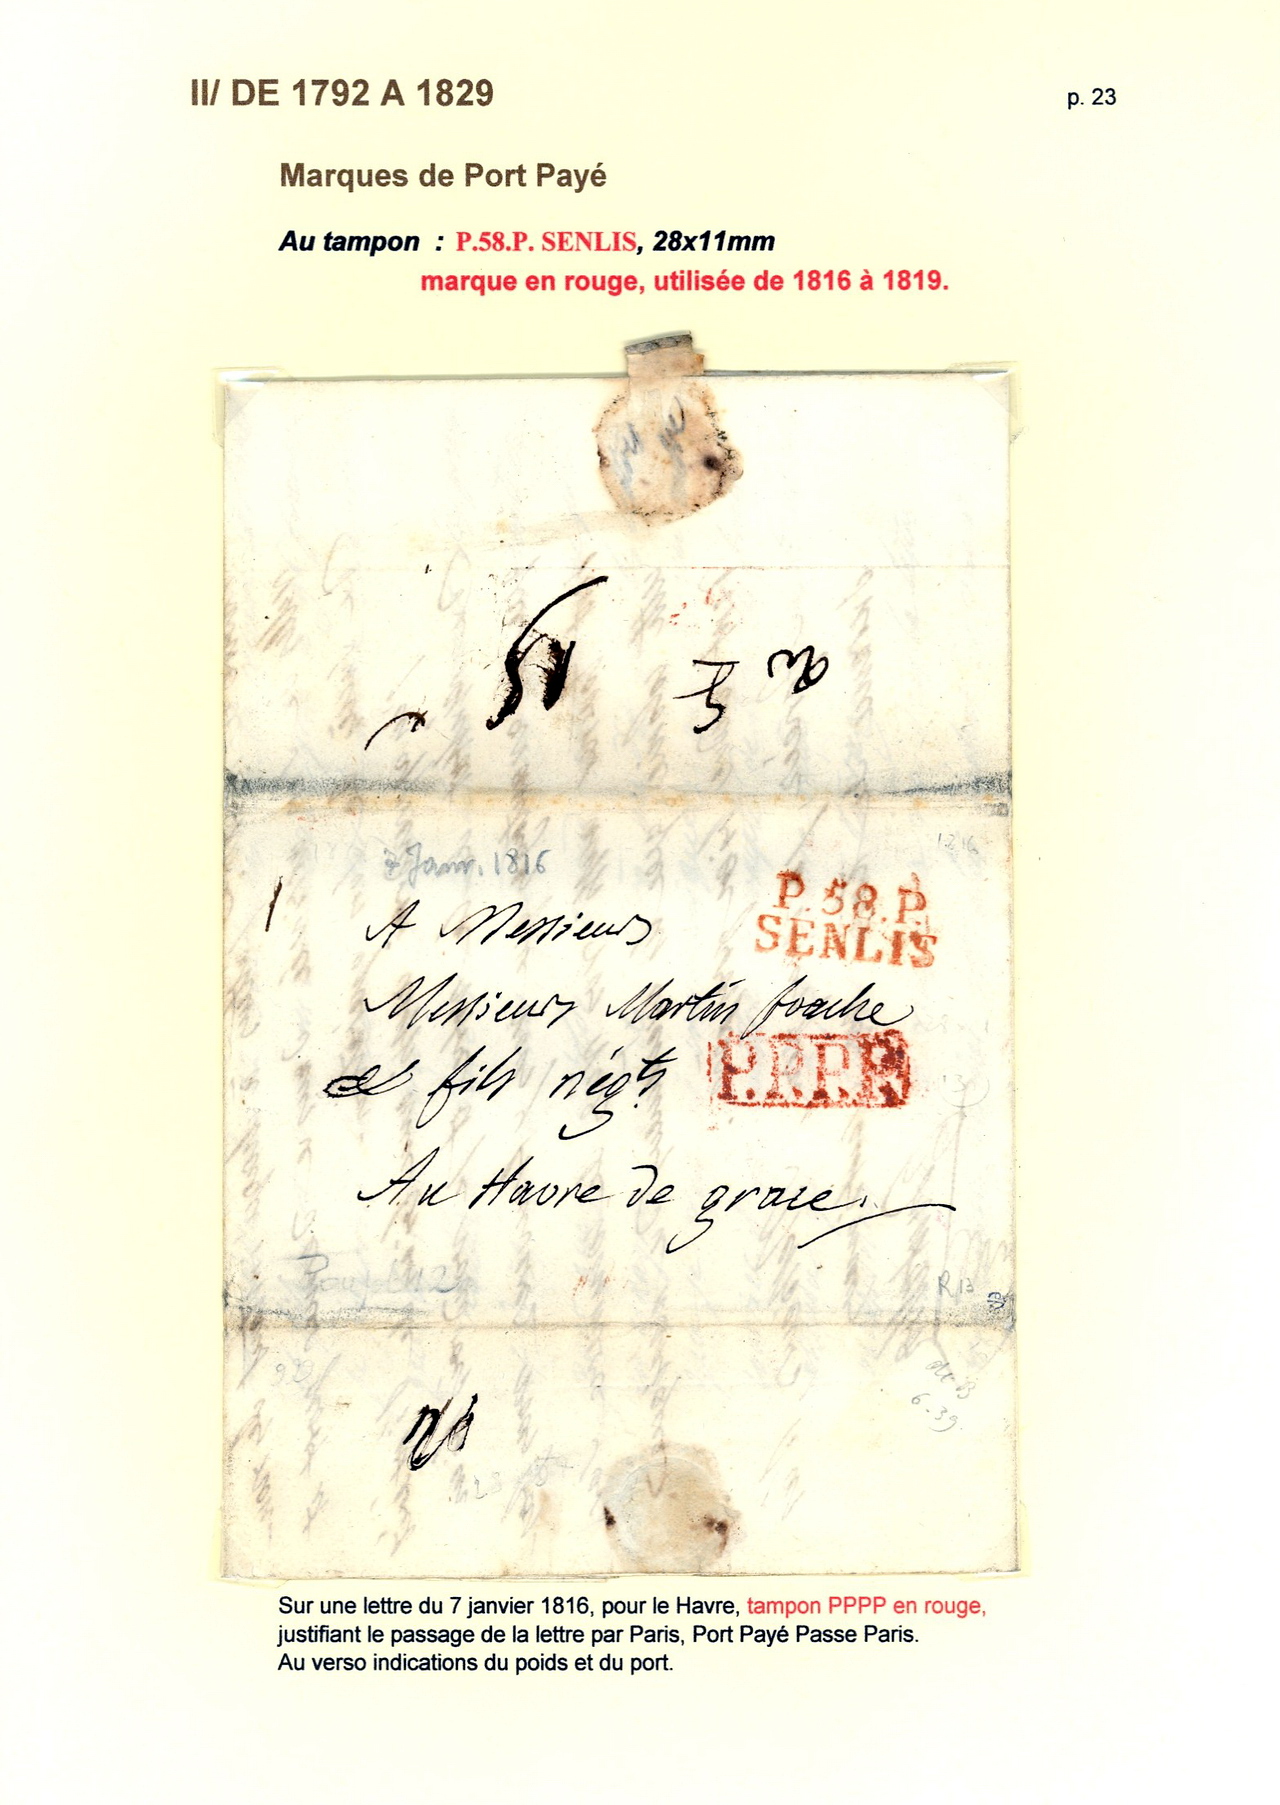 II/ DE 1792 A 1829
p. 23
Marques de Port Payé
Au tampon : P.58.P. SENLIS, 28x11mm
marque en rouge, utilisée de 1816 à 1819.
7 Janv. 1816
P.58.P.
SENLIS
A Messieurs
Messieurs Martin foache
P.P.P.P.
& fils négts
Au Havre de grace.
R13
6.39
Sur une lettre du 7 janvier 1816, pour le Havre, tampon PPPP en rouge,
justifiant le passage de la lettre par Paris, Port Payé Passe Paris.
Au verso indications du poids et du port.